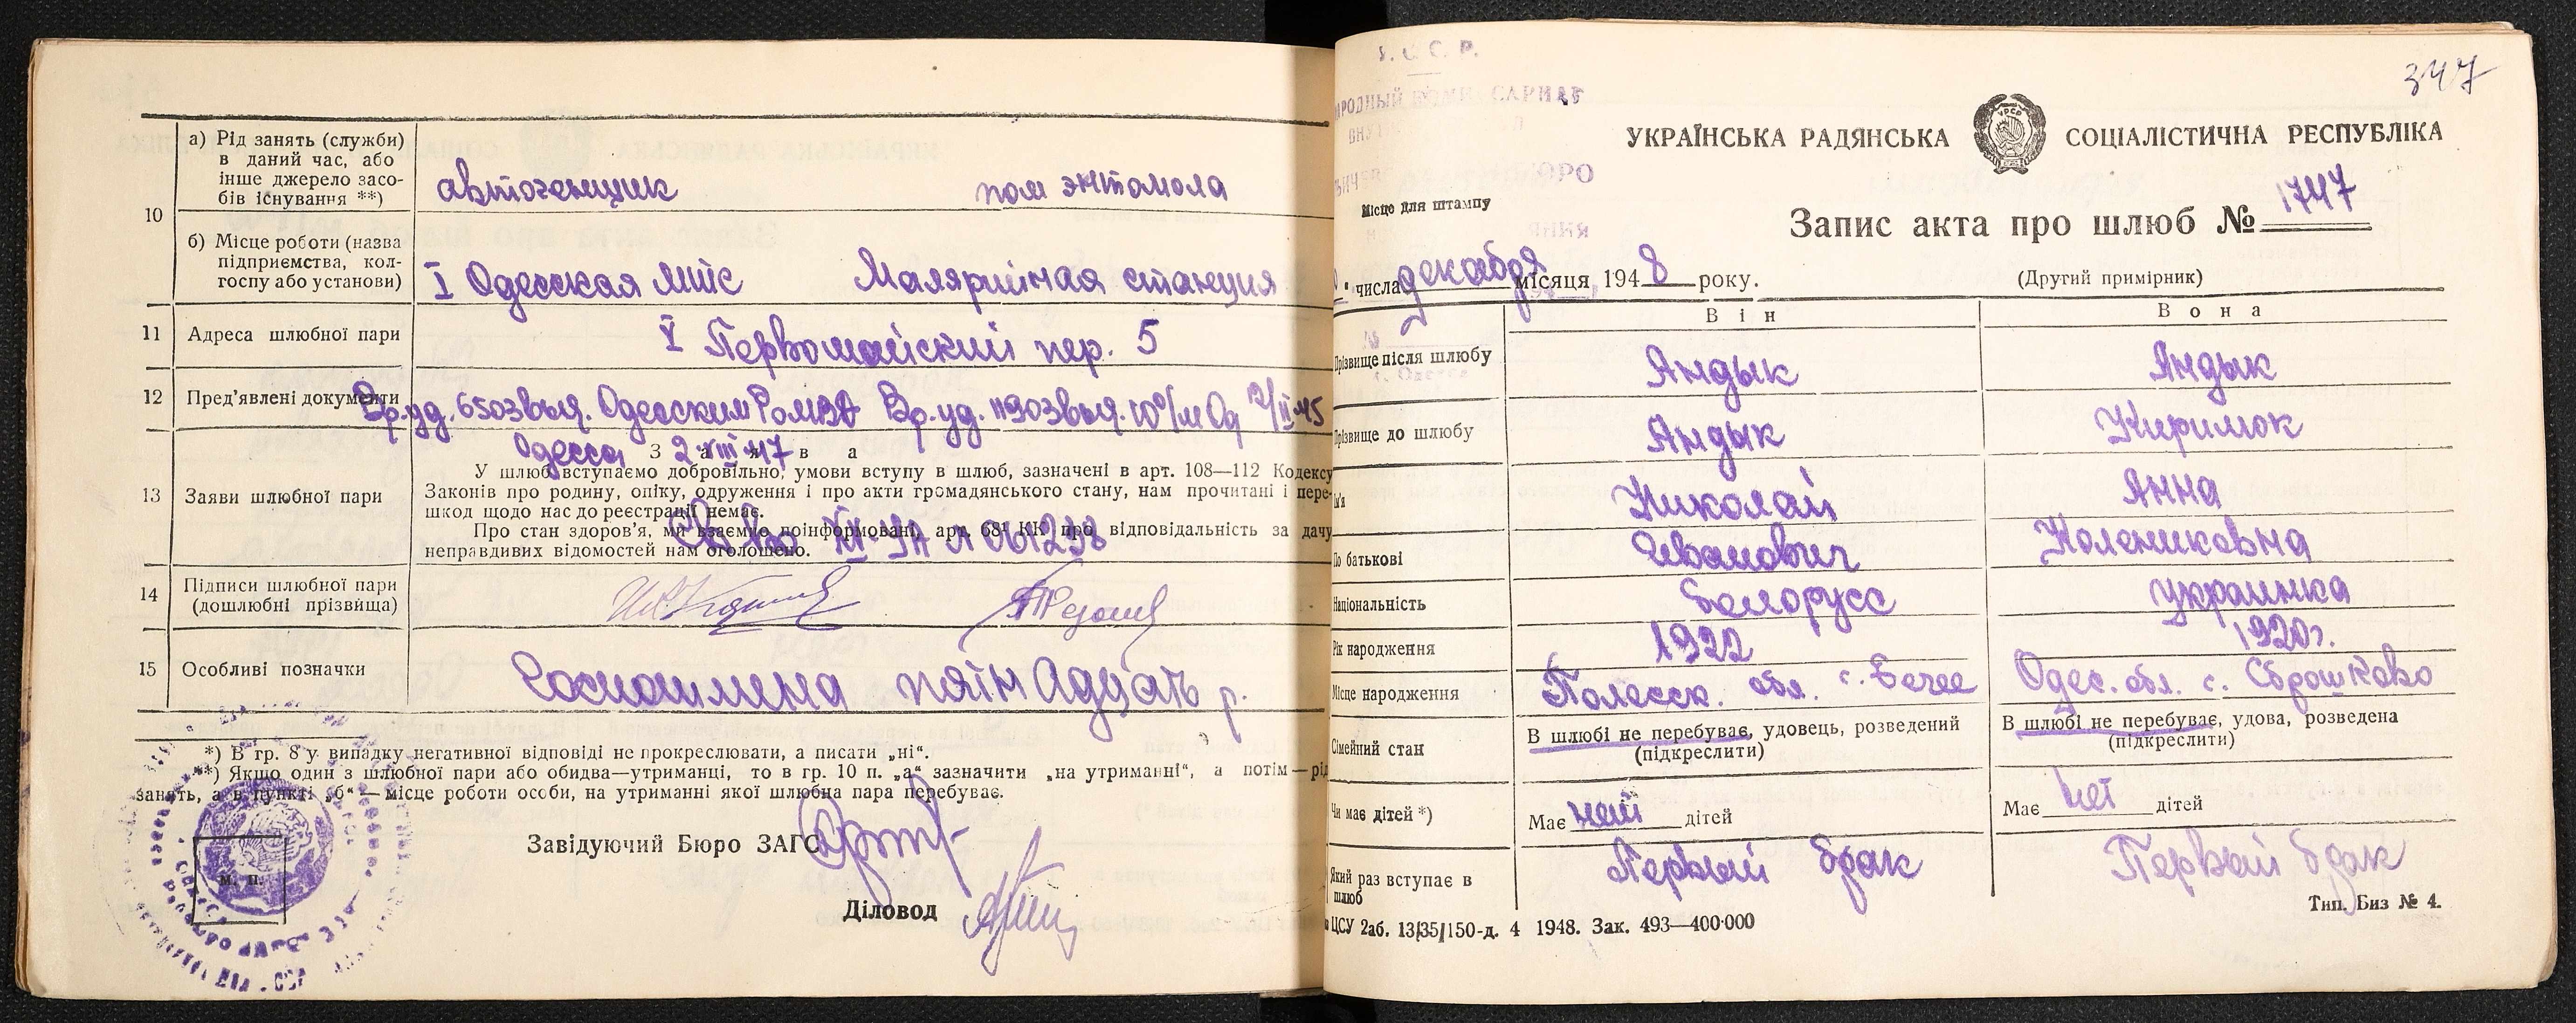 а) Рід занять (служби)
в даний час, або
інше джерело засо-
бів існування **)
автогенщик пом энтомола
10
б) Місце роботи (назва
підприємства, кол-
госпу або установи)
I Одесская мтс Малярийная станция
11 Адреса шлюбної пари V Первомайский пер. 5
12 Пред’явлені документи Вр. уд. 6503 выд. Одесским Вр. уд. выд. 10 о/м Од
Одесса З а я в а
13 Заяви шлюбної пари
У шлюб вступаємо добровільно, умови вступу в шлюб, зазначені в арт. 108—112 Кодексу
Законів про родину, опіку, одруження і про акти громадянського стану, нам прочитані і пере-
шкод щодо нас до реєстрації немає.
Про стан здоров’я, ми взаємно поінформовані, арт. 68¹ КК про відповідальність за дачу
неправдивих відомостей нам оголошено.
14 Підписи шлюбної пари
(дошлюбні прізвища)
15 Особливі позначки Госпошлина р.
*) В гр. 8 у випадку негативної відповіді не прокреслювати, а писати „ні“.
**) Якщо один з шлюбної пари або обидва—утриманці, то в гр. 10 п. „а“ зазначити „на утриманні“, а потім—рід
занять, а в пункті „б“—місце роботи особи, на утриманні якої шлюбна пара перебуває.
Завідуючий Бюро ЗАГС
м. п.
Діловод
347
У. С. С. Р.
УКРАЇНСЬКА РАДЯНСЬКА СОЦІАЛІСТИЧНА РЕСПУБЛІКА
УРСР
БЮРО
Місце для штампу
Запис акта про шлюб № 1747
числа декабря місяця 1948 року.
(Другий примірник)
Він Вона
Прізвище після шлюбу Яндык Яндык
Прізвище до шлюбу Яндык Киримок
Ім’я Николай Анна
По батькові Иванович Колениковна
Національність белорусс украинка
Рік народження 1922 1920г.
Місце народження Полесск. обл. с. Одес. обл. с.
Сімейний стан
В шлюбі не перебуває, удовець, розведений
(підкреслити)
В шлюбі не перебуває, удова, розведена
(підкреслити)
Чи має дітей *) Має нет дітей Має нет дітей
Який раз вступає в
шлюб
Первый брак Первый брак
ЦСУ 2аб. 13/35/150-д. 4 1948. Зак. 493—400·000
Тип. Биз № 4.